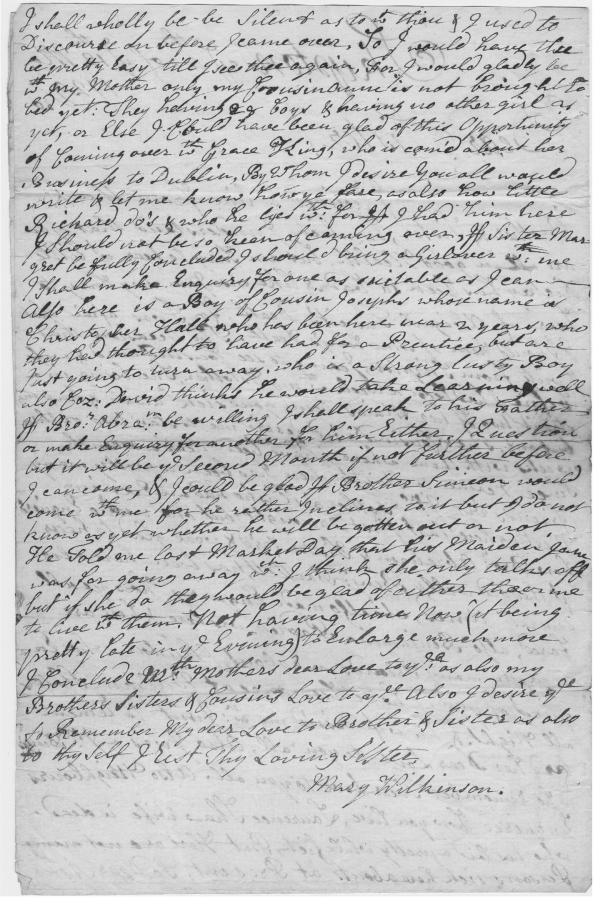 I shall wholly be be Silent as to wt thou & I used to
Discourse on before I came over, So I would have thee
be pretty Easy till I see thee again, For I would gladly be
wth my Mother only my Cousin Anne is not brought to
bed yet: They having 2 Boys & having no other girl as
yet, or Else I Could have been glad of this Opportunity
of Coming over wth Grace King, who is come about her
Business to Dublin, By Whom I desire You all would
write & let me know how ye fare, as also how little
Richard do's & who he lyes wth: for If I had him here
I Should not be so keen of coming over, If Sister Mar-
gret be fully Concluded I should bring a Girl over wth: me
I Shall make Enquiry for one as suitable as I can
Also here is a Boy of Cousin Josephs whose name is
Christopher Hall who has been here near 2 years, who
they had thought to have had for a Prentice, but are
Just going to turn away, who is a Strong Lusty Boy
also Coz: David thinks he would take Learning well
If Bror: Abram be willing I shall speak to his Father
or make Enquiry for another for him Either, I Question
but it will be ye Second Month if not further before
I can come, & I could be glad If Brother Simeon would
come wth me for he rather Inclines to it but I do not
know as yet whether he will be gotten out or not
He Told me last Market Day that his Maiden Jane
was for going away wch I think she only talks off
but if she do they would be glad of either thee or me
to live wth them. Not having time Now (it being
pretty late in ye Evining) to Enlarge much more
I Conclude Wth Mothers dear Love to ye as also my
Brothers Sisters & Cousins Love to ye Also I desire ye
to Remember My dear Love to Brother & Sister as also
to thy Self I rest Thy Loving Sister
Mary Wilkinson.